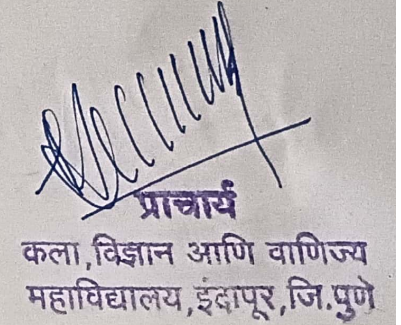 प्राचार्य
कला,विज्ञान आणि वाणिज्य
महाविद्यालय,इंदापूर,जि.पुणे